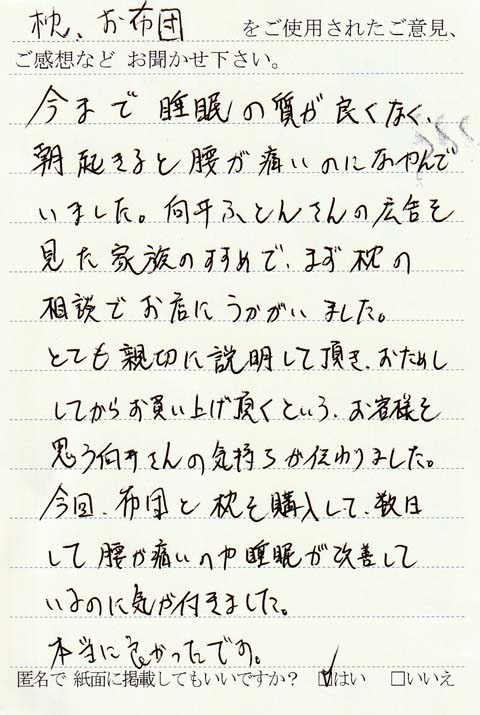 枕、お布団 をご使用されたご意見、
ご感想など お聞かせ下さい。
今まで 睡眠の質が良くなく、
朝起きると腰が痛いのになやんで
いました。向井ふとんさんの広告を
見た家族のすすめで、まず枕の
相談でお店にうかがいました。
とても親切に説明して頂き、おためし
してからお買い上げ頂くという、お客様を
思う向井さんの気持ちが伝わりました。
今回、布団と枕を購入して、数日
して腰が痛いのや睡眠が改善して
いるのに気が付きました。
本当に良かったです。
匿名で 紙面に掲載してもいいですか? ☑はい □いいえ